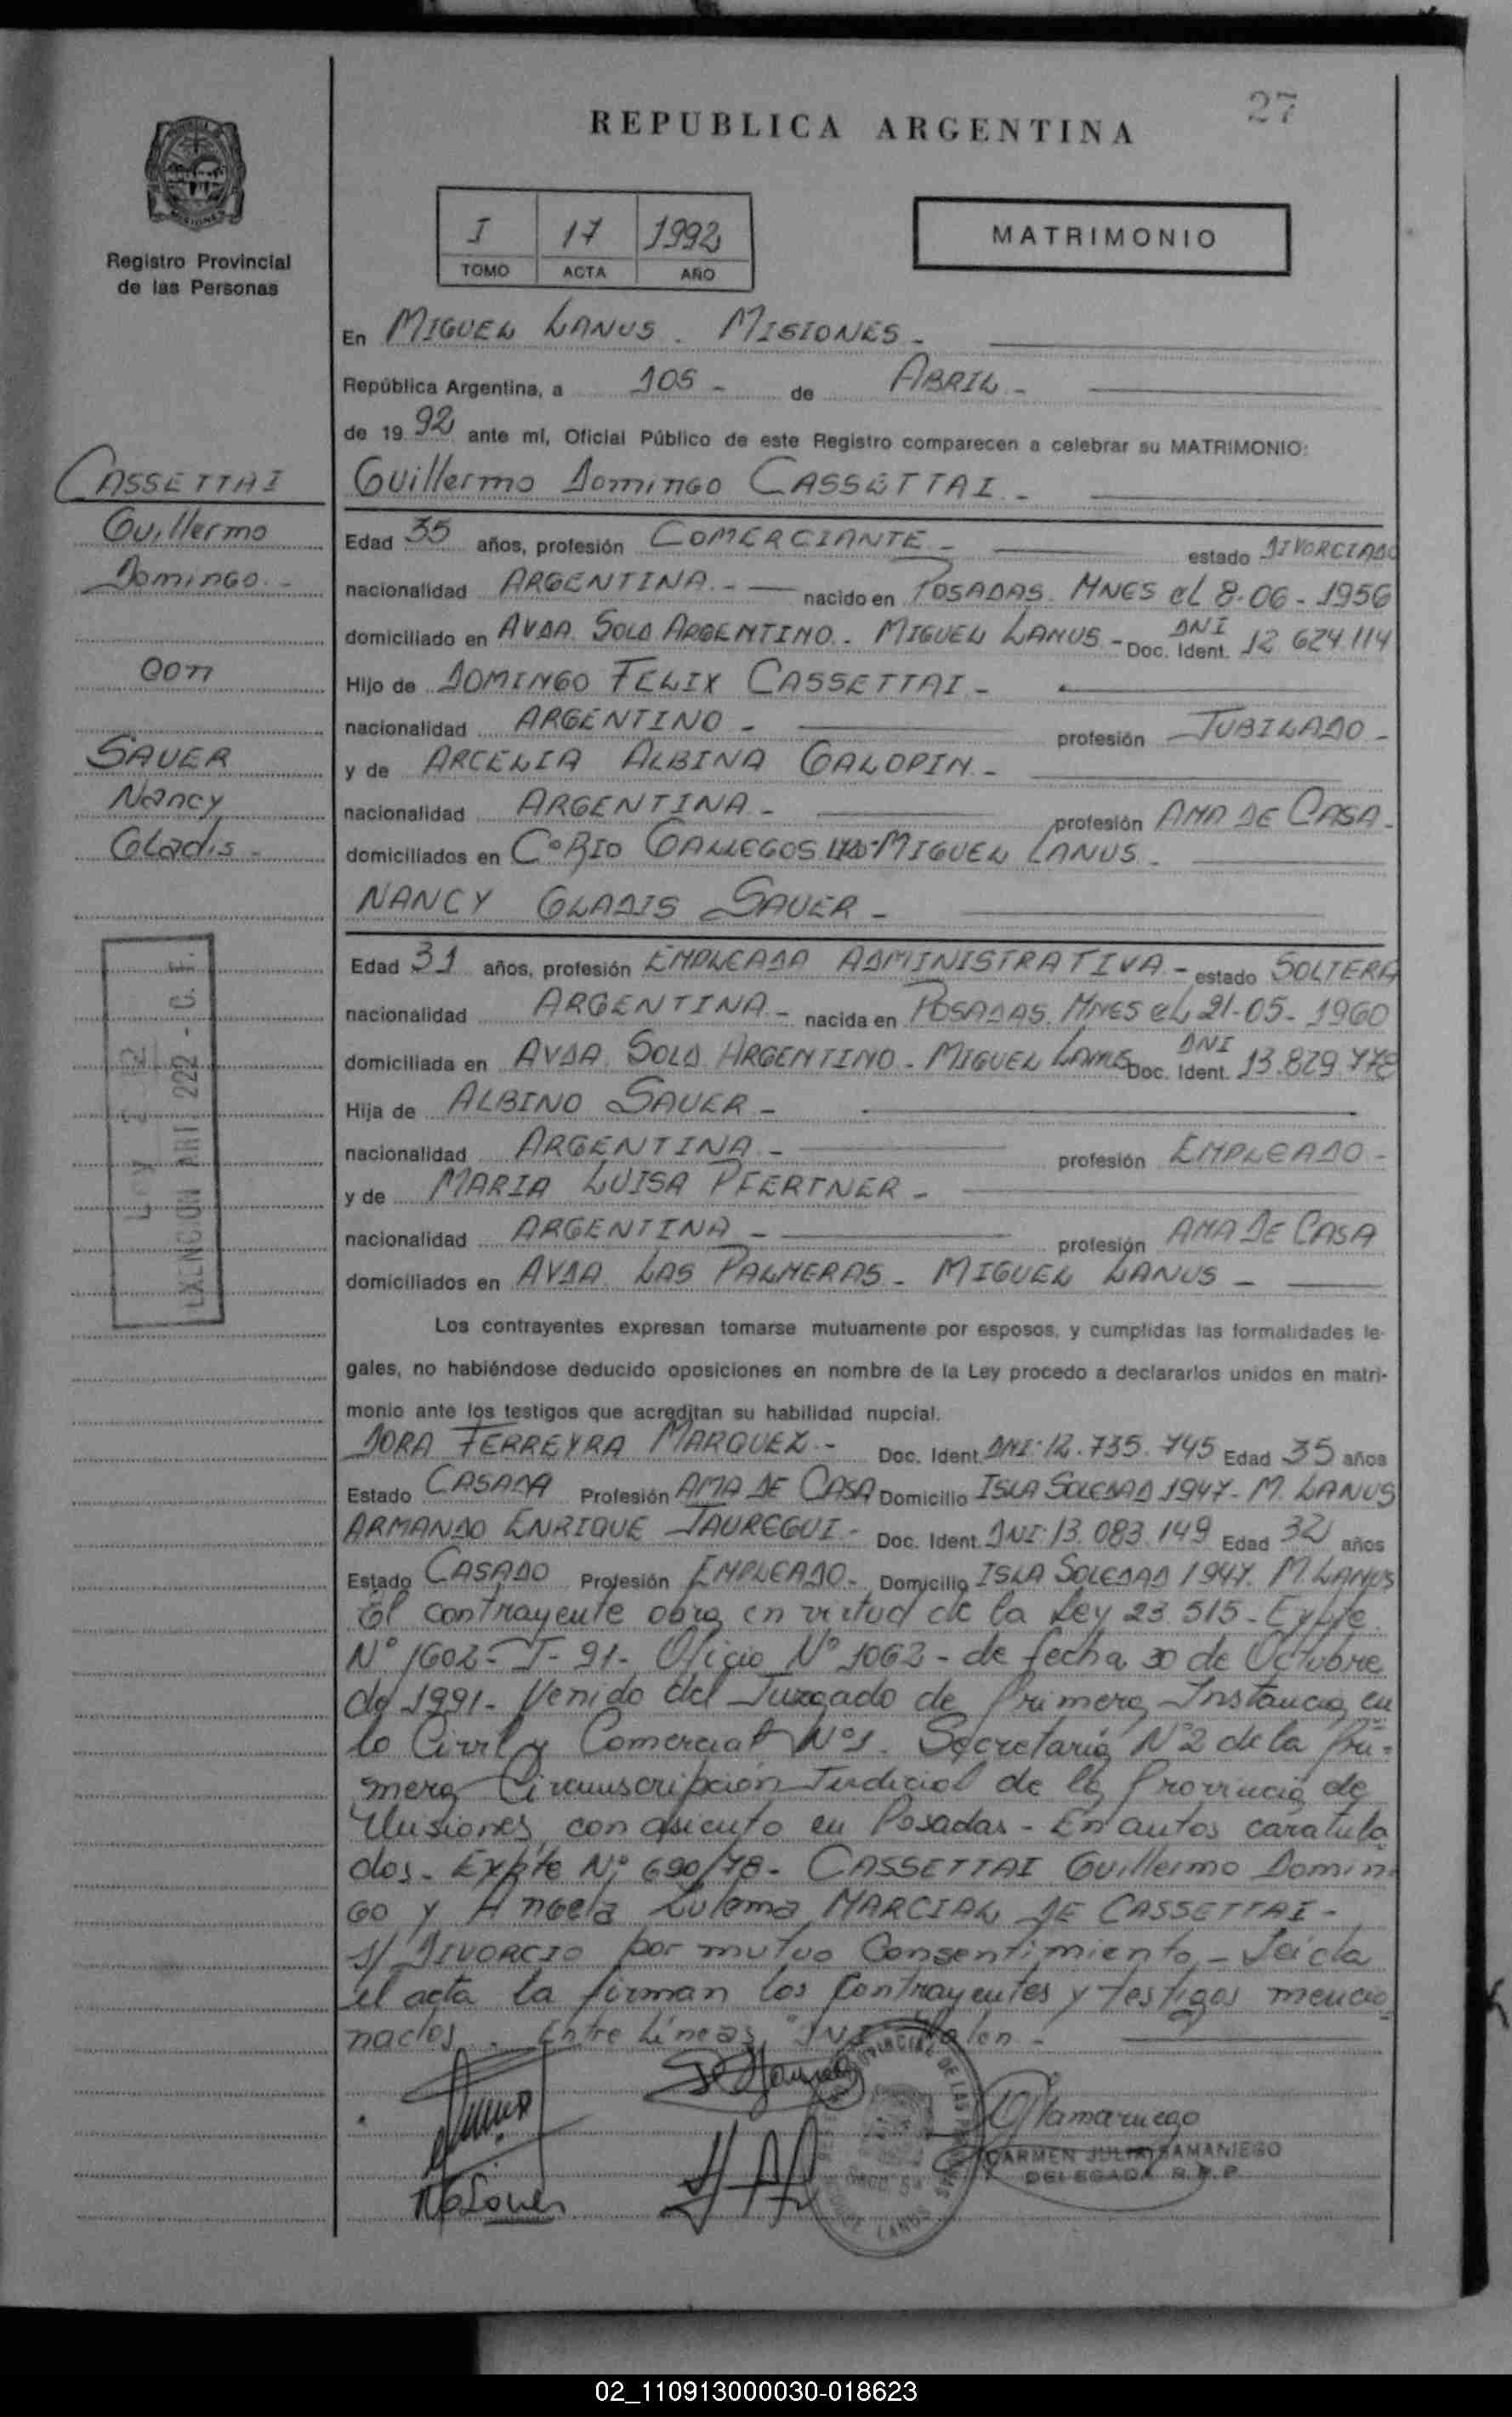 27
REPUBLICA ARGENTINA
Registro Provincial
de las Personas
I 17 1992
TOMO ACTA AÑO
MATRIMONIO
En MIGUEL LANUS. MISIONES -
República Argentina, a 105 - de ABRIL -
de 19 92 ante mí, Oficial Público de este Registro comparecen a celebrar su MATRIMONIO:
CASSETTAI
Guillermo
Domingo. -
con
SAUER
Nancy
Gladis -
Guillermo Domingo CASSETTAI -
Edad 35 años, profesión COMERCIANTE - estado DIVORCIADO
nacionalidad ARGENTINA. - nacido en POSADAS. MNES el 8-06-1956
domiciliado en AVDA. SOLD ARGENTINO. MIGUEL LANUS - Doc. Ident. DNI 12 624 114
Hijo de DOMINGO FELIX CASSETTAI -
nacionalidad ARGENTINO - profesión JUBILADO -
y de ARCELIA ALBINA GALOPIN -
nacionalidad ARGENTINA - profesión AMA DE CASA -
domiciliados en Cº RIO GALLEGOS MIGUEL LANUS -
NANCY GLADIS SAUER -
Edad 31 años, profesión EMPLEADA ADMINISTRATIVA - estado SOLTERA
nacionalidad ARGENTINA - nacida en POSADAS. MNES el 21-05-1960
domiciliada en AVDA. SOLD. ARGENTINO - MIGUEL LANUS Doc. Ident. DNI 13.829.778
Hija de ALBINO SAUER -
nacionalidad ARGENTINA - profesión EMPLEADO -
y de MARIA LUISA PFERTNER -
nacionalidad ARGENTINA - profesión AMA DE CASA
domiciliados en AVDA LAS PALMERAS - MIGUEL LANUS -
EXENCION ART. 222 - C. F.
Los contrayentes expresan tomarse mutuamente por esposos, y cumplidas las formalidades le-
gales, no habiéndose deducido oposiciones en nombre de la Ley procedo a declararlos unidos en matri-
monio ante los testigos que acreditan su habilidad nupcial.
DORA FERREYRA MARQUEZ - Doc. Ident. DNI: 12.735.745 Edad 35 años
Estado CASADA Profesión AMA DE CASA Domicilio ISLA SOLEDAD 1947 - M. LANUS
ARMANDO ENRIQUE JAUREGUI - Doc. Ident. DNI: 13.083.149 Edad 32 años
Estado CASADO Profesión EMPLEADO - Domicilio ISLA SOLEDAD 1947. M. LANUS
El contrayente obra en virtud de la Ley 23.515 - Expte.
Nº 1602-J-91 - Oficio Nº 1062 - de fecha 30 de Octubre
de 1991 - Venido del Juzgado de Primera Instancia en
lo Civil y Comercial Nº 1. Secretaria Nº 2 de la Pri-
mera Circunscripción Judicial de la Provincia de
Misiones, con asiento en Posadas - En autos caratula
dos - Expte Nº 690/78 - CASSETTAI Guillermo Domin-
go y Angela Zulema MARCIAL DE CASSETTAI -
s/ DIVORCIO por mutuo Consentimiento - Leida
el acta la firman los contrayentes y testigos mencio
nados. Entre Lineas "DNI" Valen -
CARMEN JULIA SAMANIEGO
DELEGADA R.P.P.
02_110913000030-018623